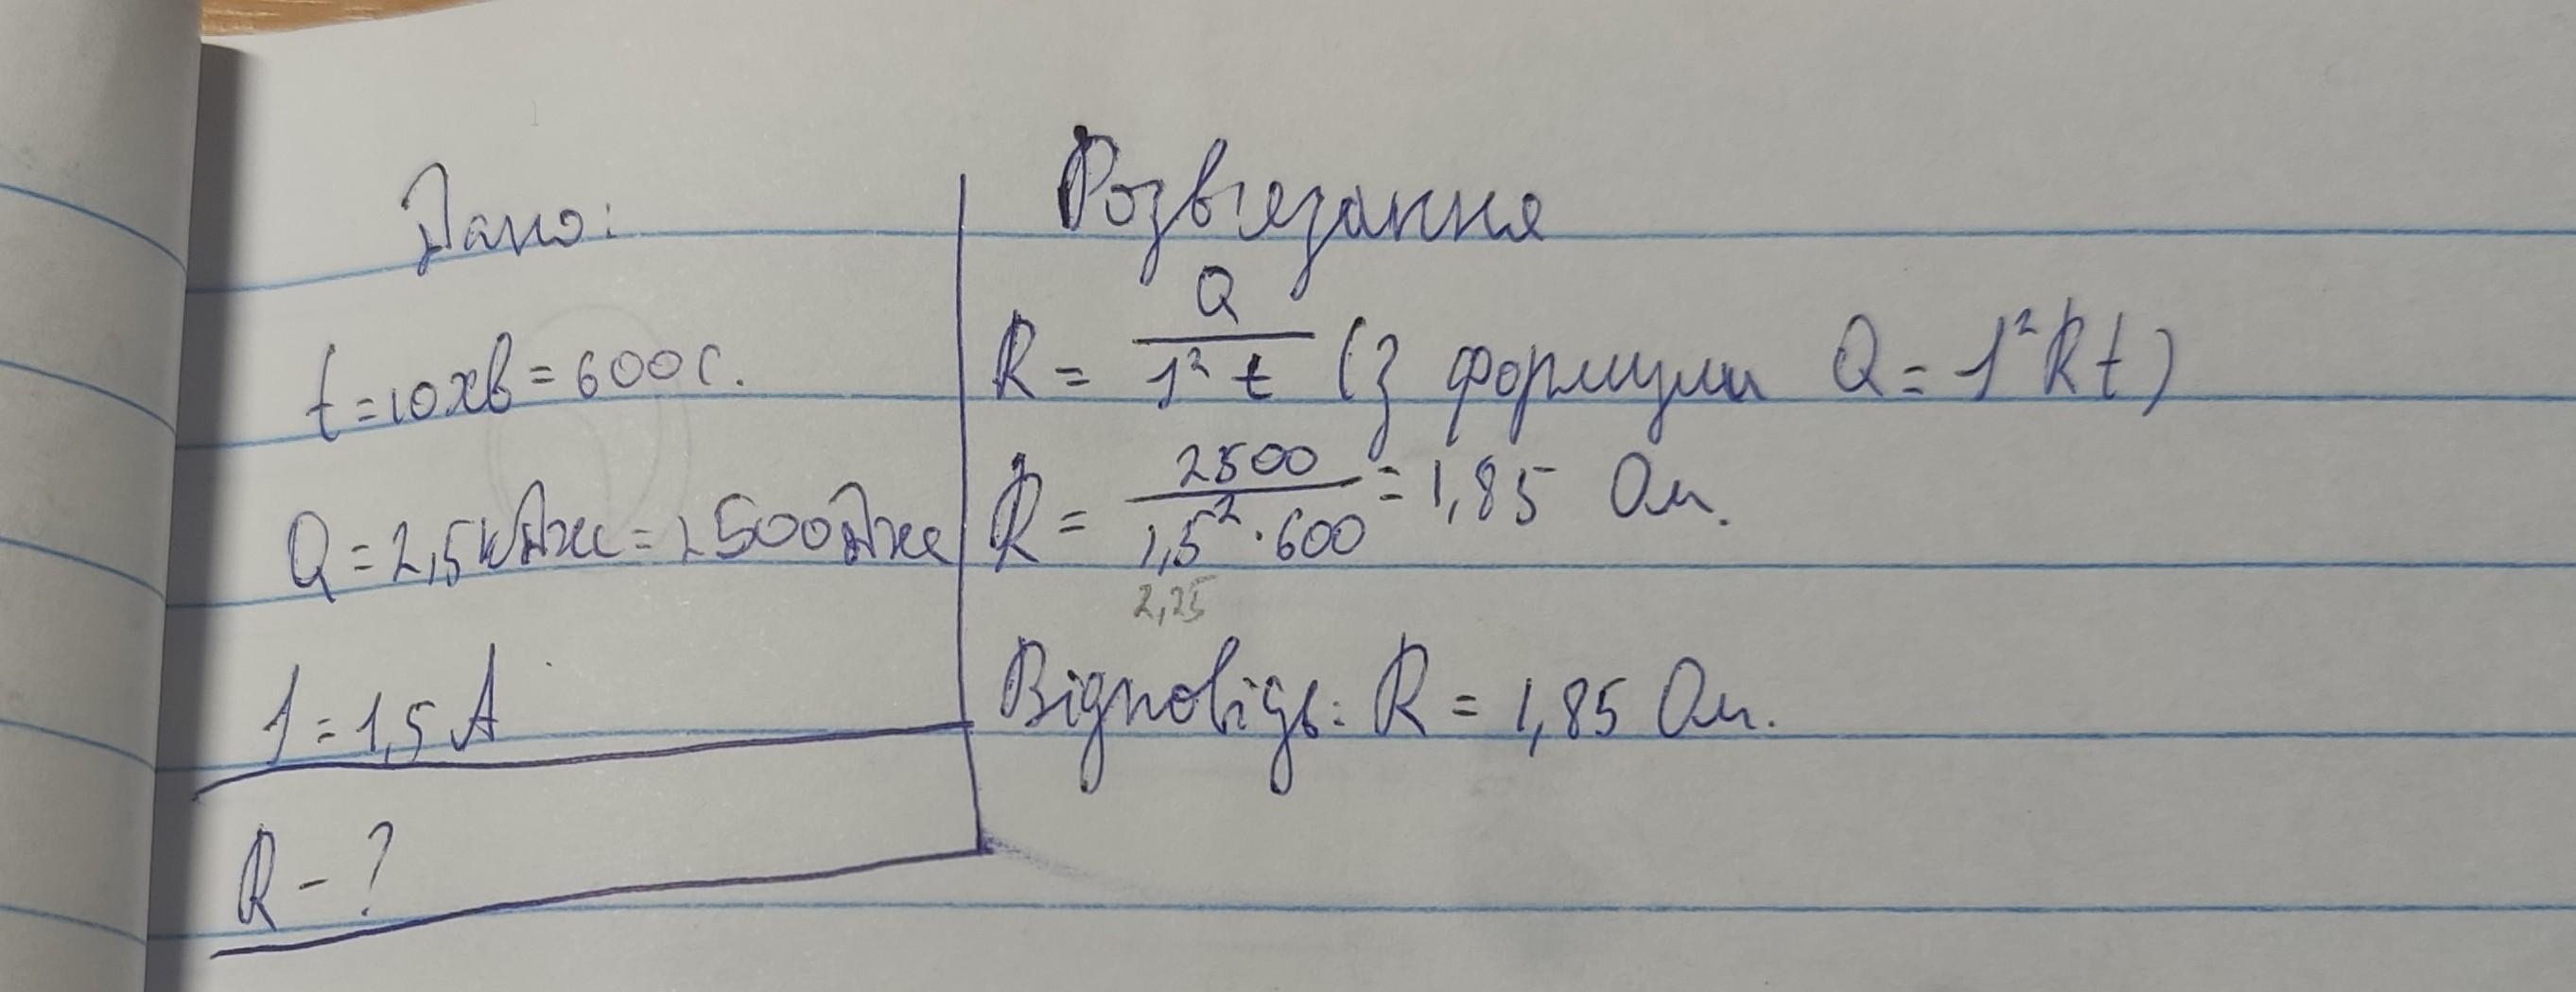 Дано:
t=10хв=600с.
Q=2,5кДж=2500Дж
I=1,5 А
R-?
Розвязання
R = Q / I² t (з формули Q = I² R t)
R = 2500 / 1,5² · 600 = 1,85 Ом.
2,25
Відповідь: R = 1,85 Ом.